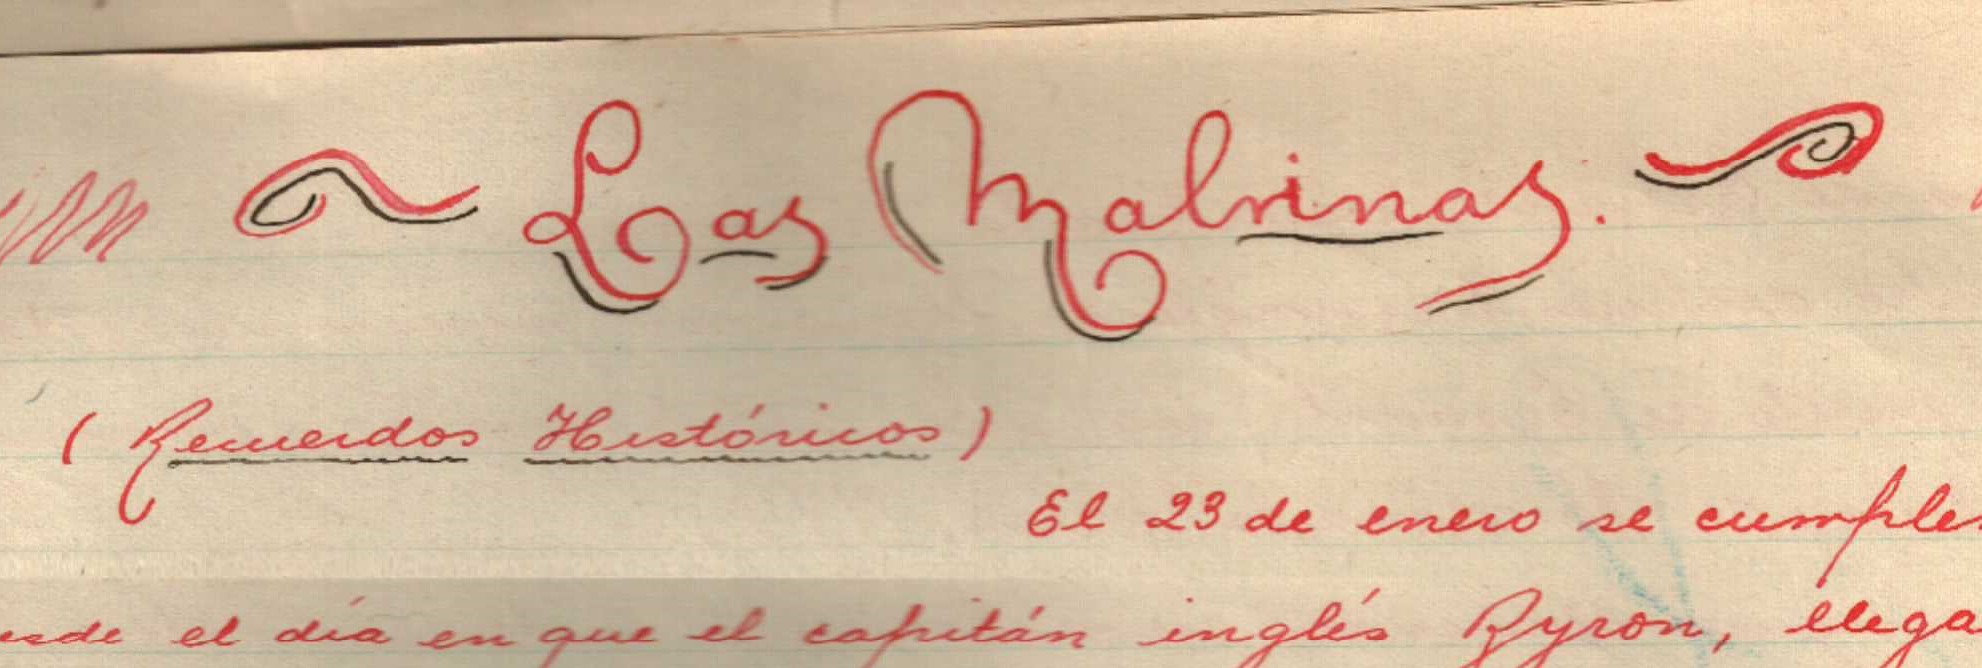 Las Malvinas.
(Recuerdos Históricos)
El 23 de enero se cumple
esde el día en que el capitán inglés Byron, llega